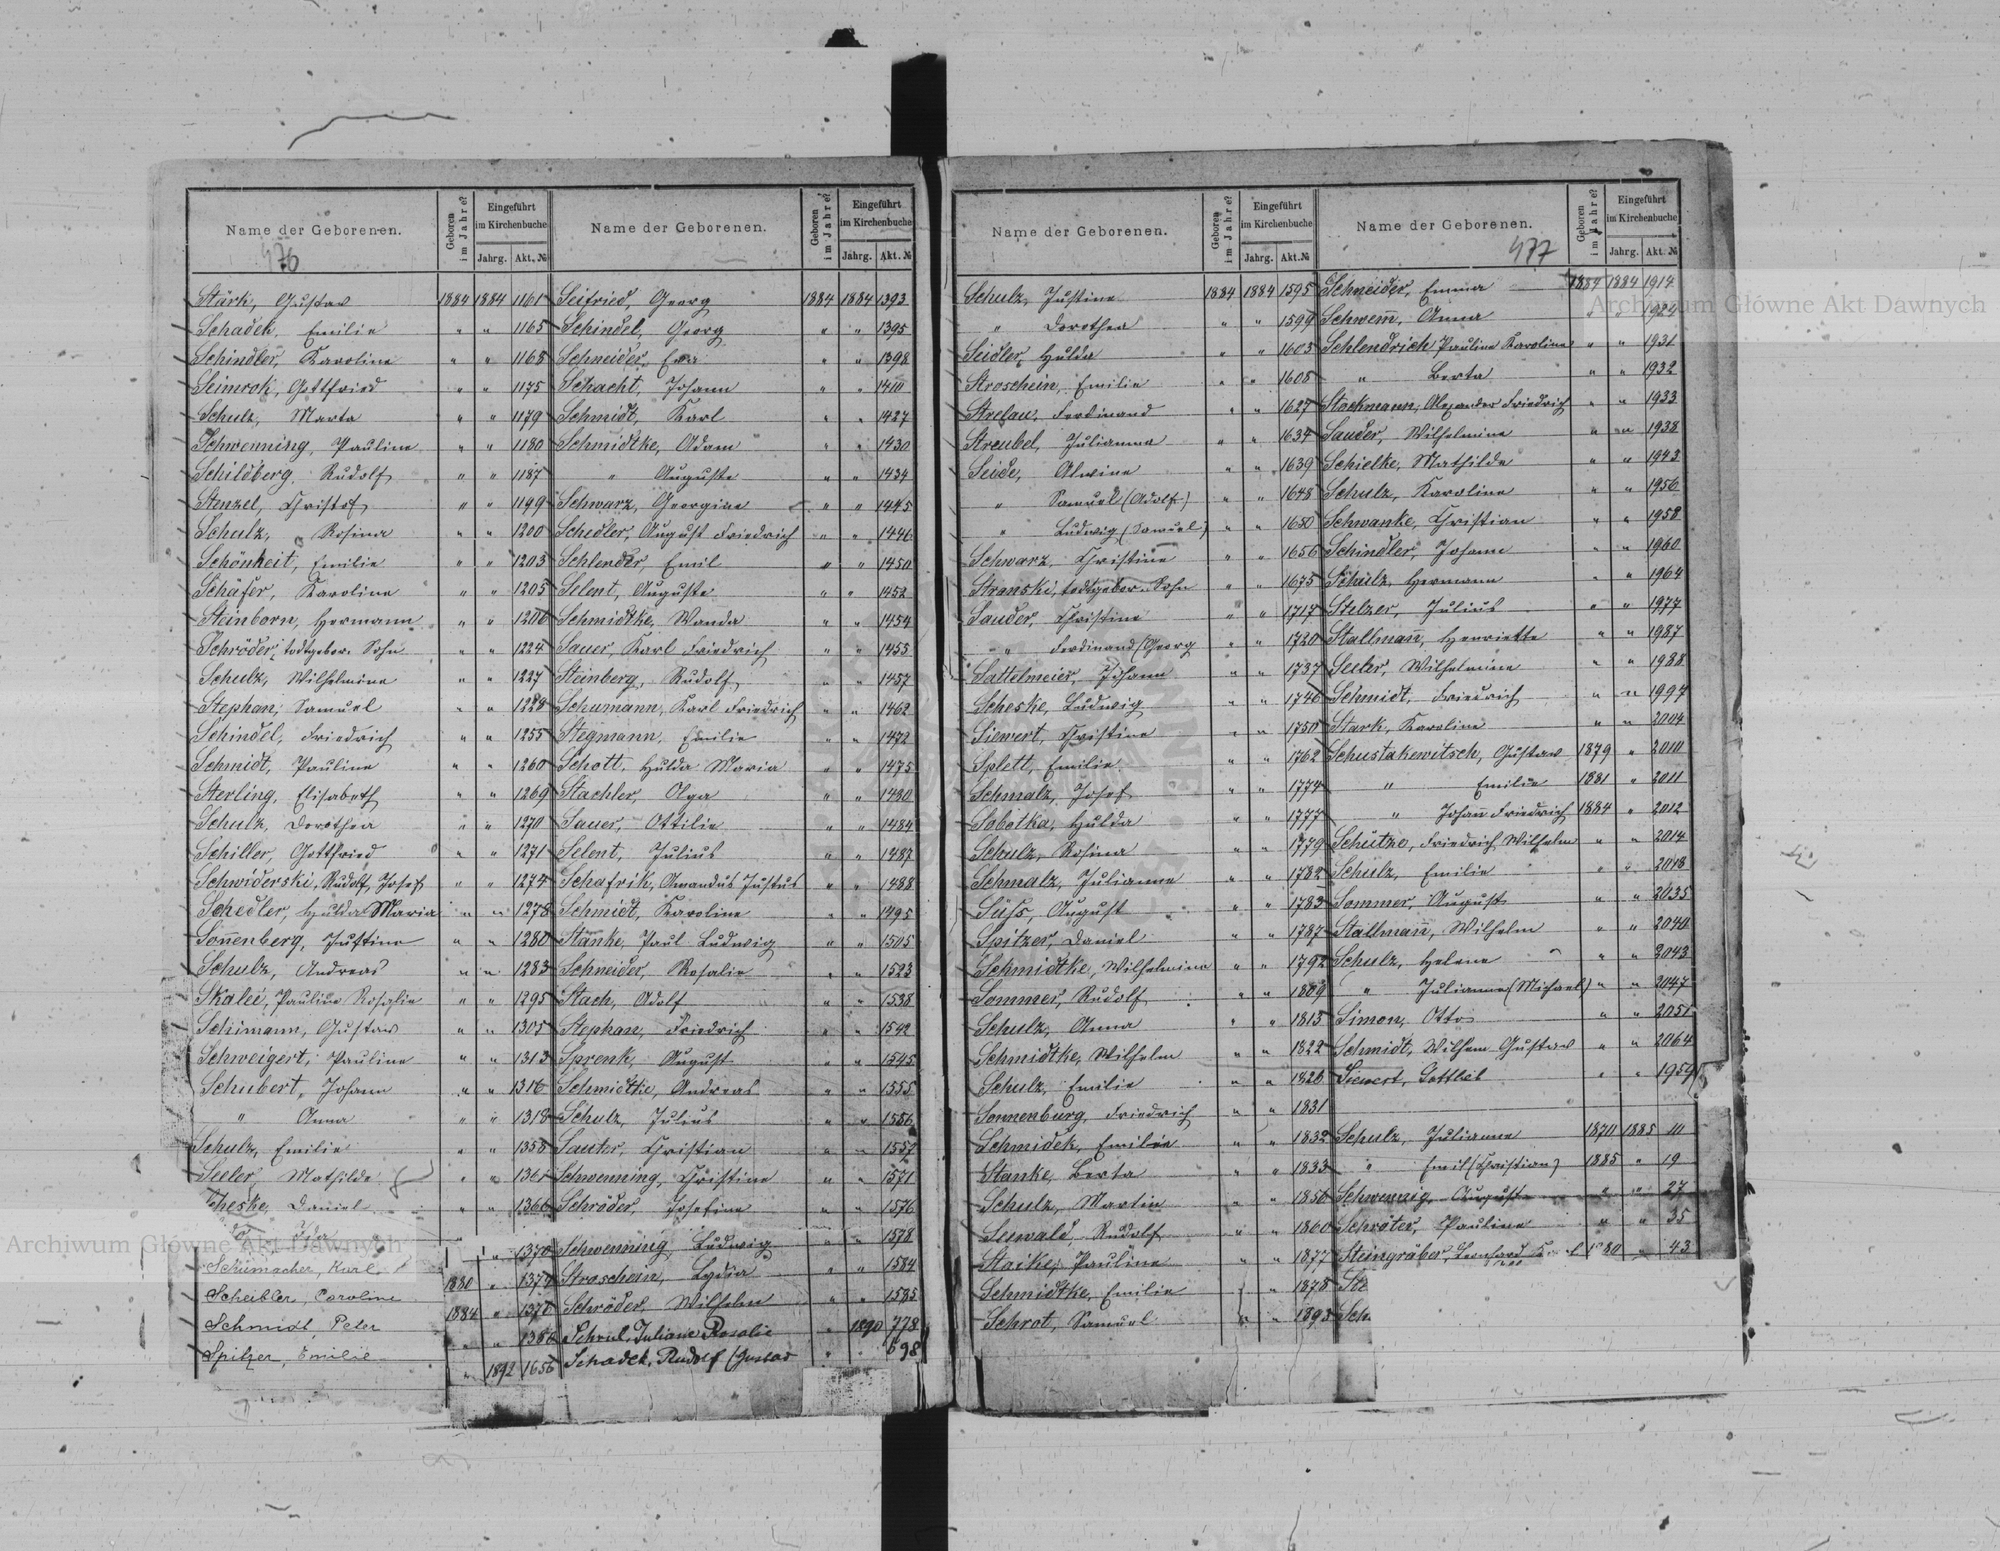 Name der Geborenen. Geboren im Jahre? Eingeführt im Kirchenbuche Jahrg. Akt. №
476
Stärk, Gustav 1884 1884 1161
Schadek, Emilie " " 1165
Schindler, Karoline " " 1168
Seimrok, Gottfried " " 1175
Schulz, Marta " " 1179
Schwenning, Pauline " " 1180
Schildberg, Rudolf " " 1187
Stenzel, Christof " " 1199
Schulz, Rosina " " 1200
Schönkeit, Emilie " " 1203
Schäfer, Karoline " " 1205
Steinborn, Hermann " " 1206
Schröder, todtgebor. Sohn " " 1224
Schulz, Wilhelmine " " 1227
Stephan, Samuel " " 1228
Schindel, Friedrich " " 1255
Schmidt, Pauline " " 1260
Sterling, Elisabeth " " 1269
Schulz, Dorothea " " 1270
Schiller, Gottfried " " 1271
Schwiderski, Rudolf Josef " " 1274
Schedler, Hulda Maria " " 1278
Soñenberg, Justine " " 1280
Schulz, Andreas " " 1283
Skalei, Pauline Rosalie " " 1295
Schimann, Gustav " " 1305
Schweigert, Pauline " " 1313
Schubert, Johann " " 1316
" Anna " " 1318
Schulz, Emilie " " 1358
Seeler, Mathilde " " 1361
Scheske, Daniel " " 1366
Ida " 1370
Schumacher, Karl 1880 " 1377
Scheibler, Caroline 1884 " 1378
Schmidt, Peter " " 1386
Spitzer, Emilie " 1892 1656
Name der Geborenen. Geboren im Jahre? Eingeführt im Kirchenbuche Jahrg. Akt. №
Seifried, Georg 1884 1884 1393
Schindel, Georg " " 1395
Schneider, Eva " " 1398
Schacht, Johann " " 1410
Schmidt, Karl " " 1427
Schmidtke, Adam " " 1430
" Auguste " " 1434
Schwarz, Georgine " " 1445
Schedler, August Friedrich " " 1446
Schlender, Emil " " 1450
Selent, Auguste " " 1452
Schmidtke, Wanda " " 1454
Sauer, Karl Friedrich " " 1455
Steinberg, Rudolf " " 1457
Schumann, Karl Friedrich " " 1462
Stegmann, Emilie " " 1472
Schott, Hulda Maria " " 1475
Stachler, Olga " " 1480
Sauer, Ottilie " " 1484
Selent, Julius " " 1487
Schafrik, Amandus Justus " " 1488
Schmidt, Karoline " " 1495
Stanke, Paul Ludwig " " 1505
Schneider, Rosalie " " 1523
Stach, Adolf " " 1538
Stephan, Friedrich " " 1542
Sprenk, August " " 1545
Schmidtke, Andreas " " 1555
Schulz, Julius " " 1556
Sauter, Christian " " 1557
Schwenning, Christine " " 1571
Schröder, Josefine " " 1576
Schwenning, Ludwig " " 1578
Stroschein, Lydia " " 1584
Schröder, Wilhelm " " 1585
Schrul, Juliane Rosalie " 1890 778
Schadek, Rudolf (Gustav " " 698
Name der Geborenen. Geboren im Jahre? Eingeführt im Kirchenbuche Jahrg. Akt. №
Schulz, Justine 1884 1884 1595
" Dorothea " " 1599
Seidler, Hulda " " 1603
Stroschein, Emilie " " 1608
Strelau, Ferdinand " " 1627
Streubel, Julianna " " 1634
Seide, Alwine " " 1639
" Samuel (Adolf) " " 1648
" Ludwig (Samuel) " " 1650
Schwarz, Christine " " 1656
Stranski, todtgebor. Sohn " " 1675
Sauder, Christine " " 1717
" Ferdinand (Georg " " 1720
Sattelmeier, Johann " " 1737
Scheske, Ludwig " " 1746
Siewert, Christine " " 1750
Splett, Emilie " " 1762
Schmalz, Josef " " 1774
Sobotka, Hulda " " 1777
Schulz, Rosina " " 1779
Schmalz, Julianne " " 1782
Süss, August " " 1783
Spitzer, Daniel " " 1787
Schmidtke, Wilhelmine " " 1792
Sommer, Rudolf " " 1809
Schulz, Anna " " 1815
Schmidtke, Wilhelm " " 1822
Schulz, Emilie " " 1826
Sonnenburg, Friedrich " " 1831
Schmidek, Emilie " " 1832
Stanke, Berta " " 1833
Schulz, Martin " " 1856
Seewald, Rudolf " " 1860
Starke, Pauline " " 1877
Schmidtke, Emilie " " 1878
Schrot, Samuel " " 1893
Name der Geborenen. Geboren im Jahre? Eingeführt im Kirchenbuche Jahrg. Akt. №
477
Schneider, Emma 1884 1884 1914
Schwem̃, Anna " " 1929
Schlendrich Pauline Karoline " " 1931
" Berta " " 1932
Stockmann, Alexander Friedrich " " 1933
Sauder, Wilhelmine " " 1938
Schielke, Mathilde " " 1943
Schulz, Karoline " " 1956
Schwanke, Christian " " 1958
Schindler, Johann " " 1960
Schulz, Hermann " " 1964
Stelzer, Julius " " 1977
Stallmañ, Henriette " " 1987
Seiler, Wilhelmine " " 1988
Schmidt, Friedrich " " 1994
Stark, Karoline " " 2004
Schustakewitsch, Gustav 1879 " 2010
" Emilie 1881 " 2011
" Johañ Friedrich 1884 " 2012
Schütze, Friedrich Wilhelm " " 2014
Schulz, Emilie " " 2018
Sommer, August " " 2035
Stallmañ, Wilhelm " " 2040
Schulz, Helene " " 2043
" Julianne (Michael) " " 2047
Simon, Otto " " 2051
Schmidt, Wilhem Gustav " " 2064
Siewert, Gottlieb " " 1959
Schulz, Julianne 1870 1885 10
" Emil (Christian) 1885 " 19
Schwennig, August " " 27
Schröter, Pauline " " 35
Steingräber, Leonhard 1880 " 43
Ste
Sch
Archiwum Główne Akt Dawnych
Archiwum Główne Akt Dawnych